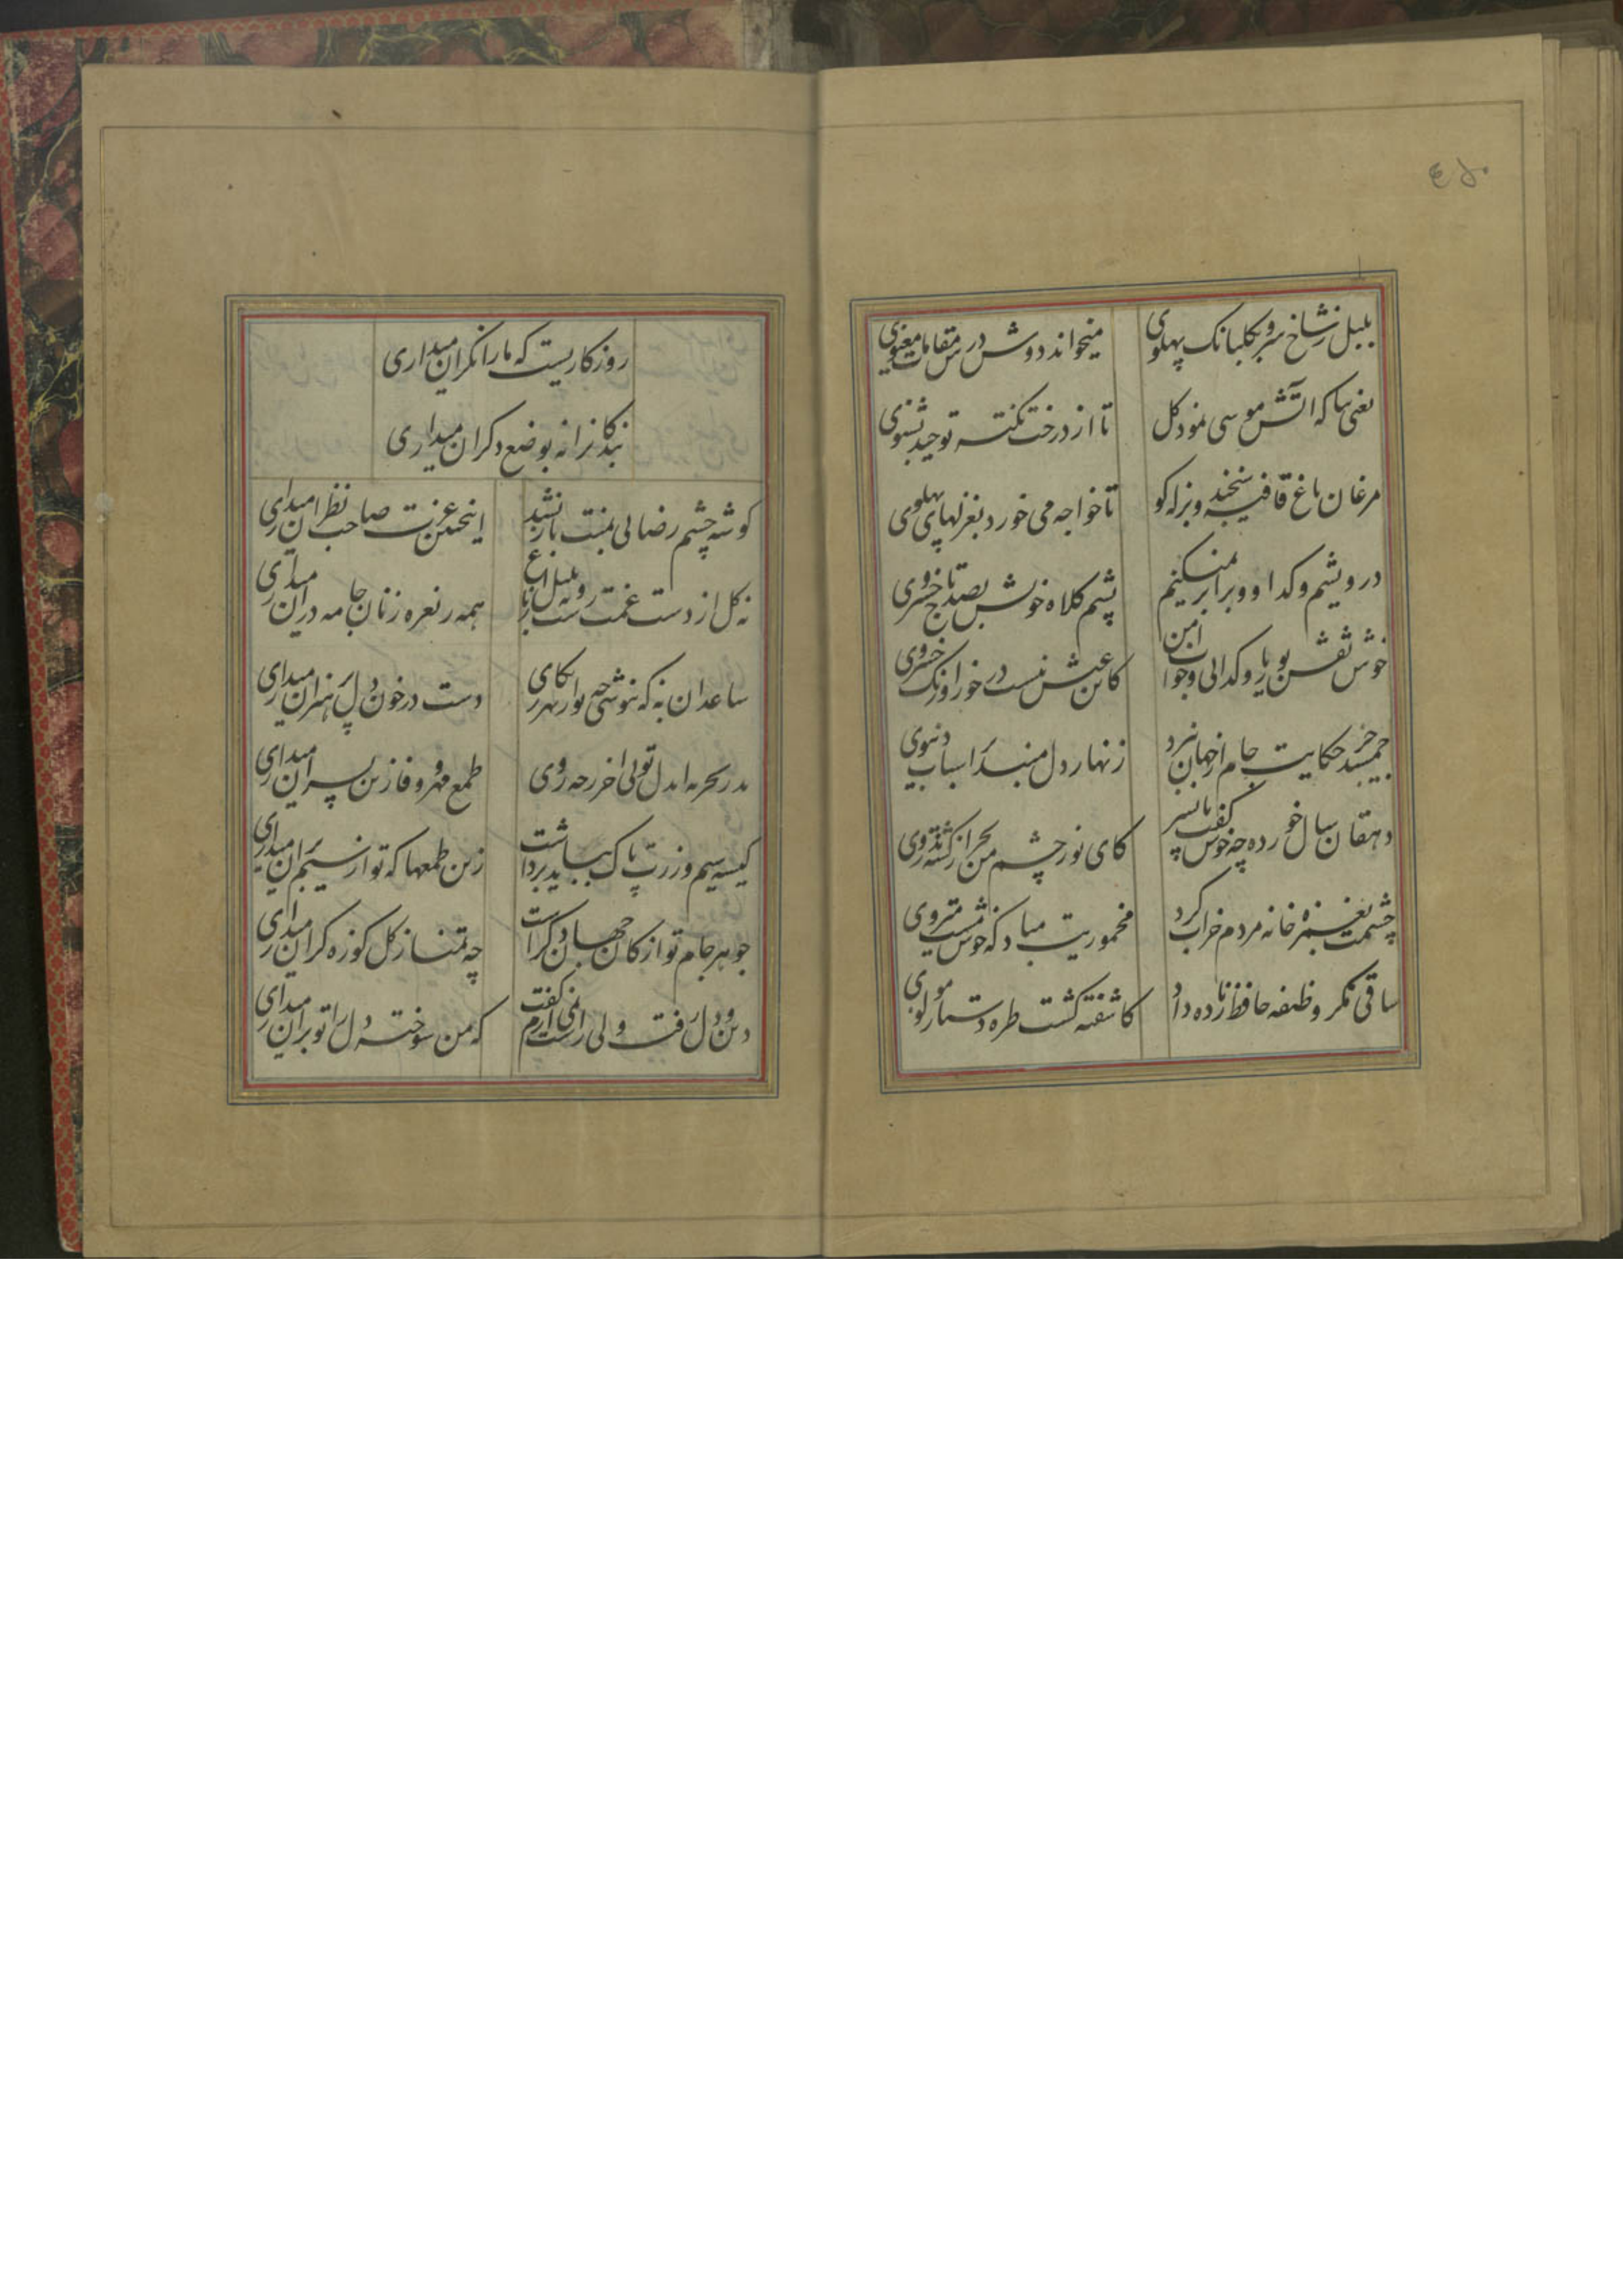 ٤٥٠
بلبل ز شاخ سرو بکلبانک پهلوی
میخواند دوش درس مقامات معنوی
یعنی بیا که آتش موسی نمود کل
تا از درخت نکته توحید بشنوی
مرغان باغ قافیه سنجند و بزله کو
تا خواجه می خورد بغزلهای پهلوی
درویشم و کدا و برابر نمیکنم
پشم کلاه خویش بصد تاج خسروی
خوش نقش بوریا و کدائی و خواب امن
کاین عیش نیست در خور اورنک خسروی
جمشید جز حکایت جام از جهان نبرد
زنهار دل مبند بر اسباب دنیوی
دهقان سال خورده چه خوش کفت با پسر
کای نور چشم من بجز از کشته ندروی
چشمت بغمزه خانه مردم خراب کرد
مخموریت مباد که خوش مست میروی
ساقی مکر وظیفه حافظ زیاده داد
کاشفته کشت طره دستار مولوی
روزکاریست که ما را نکران میداری
بندکانرا نه بوضع دکران میداری
کوشه چشم رضائی بمنت باز نشد
اینچنین عزت صاحب نظران میداری
نه کل از دست غمت رست و نه بلبل در باغ
همه را نعره زنان جامه دران میداری
ساعد آن به که بپوشی چو از بهر نکار
دست در خون دل پر هنران میداری
پدر تجربه ایدل توئی آخر ز چه روی
طمع مهر و وفا زین پسران میداری
کیسه سیم و زرت پاک بباید پرداخت
زین طمعها که تو از سیم بران میداری
جوهر جام تو از کان جهان دکر است
چه تمنا ز کل کوزه کران میداری
دین و دل رفت ولی راست نمی آرم کفت
که من سوخته دل را تو بر آن میداری